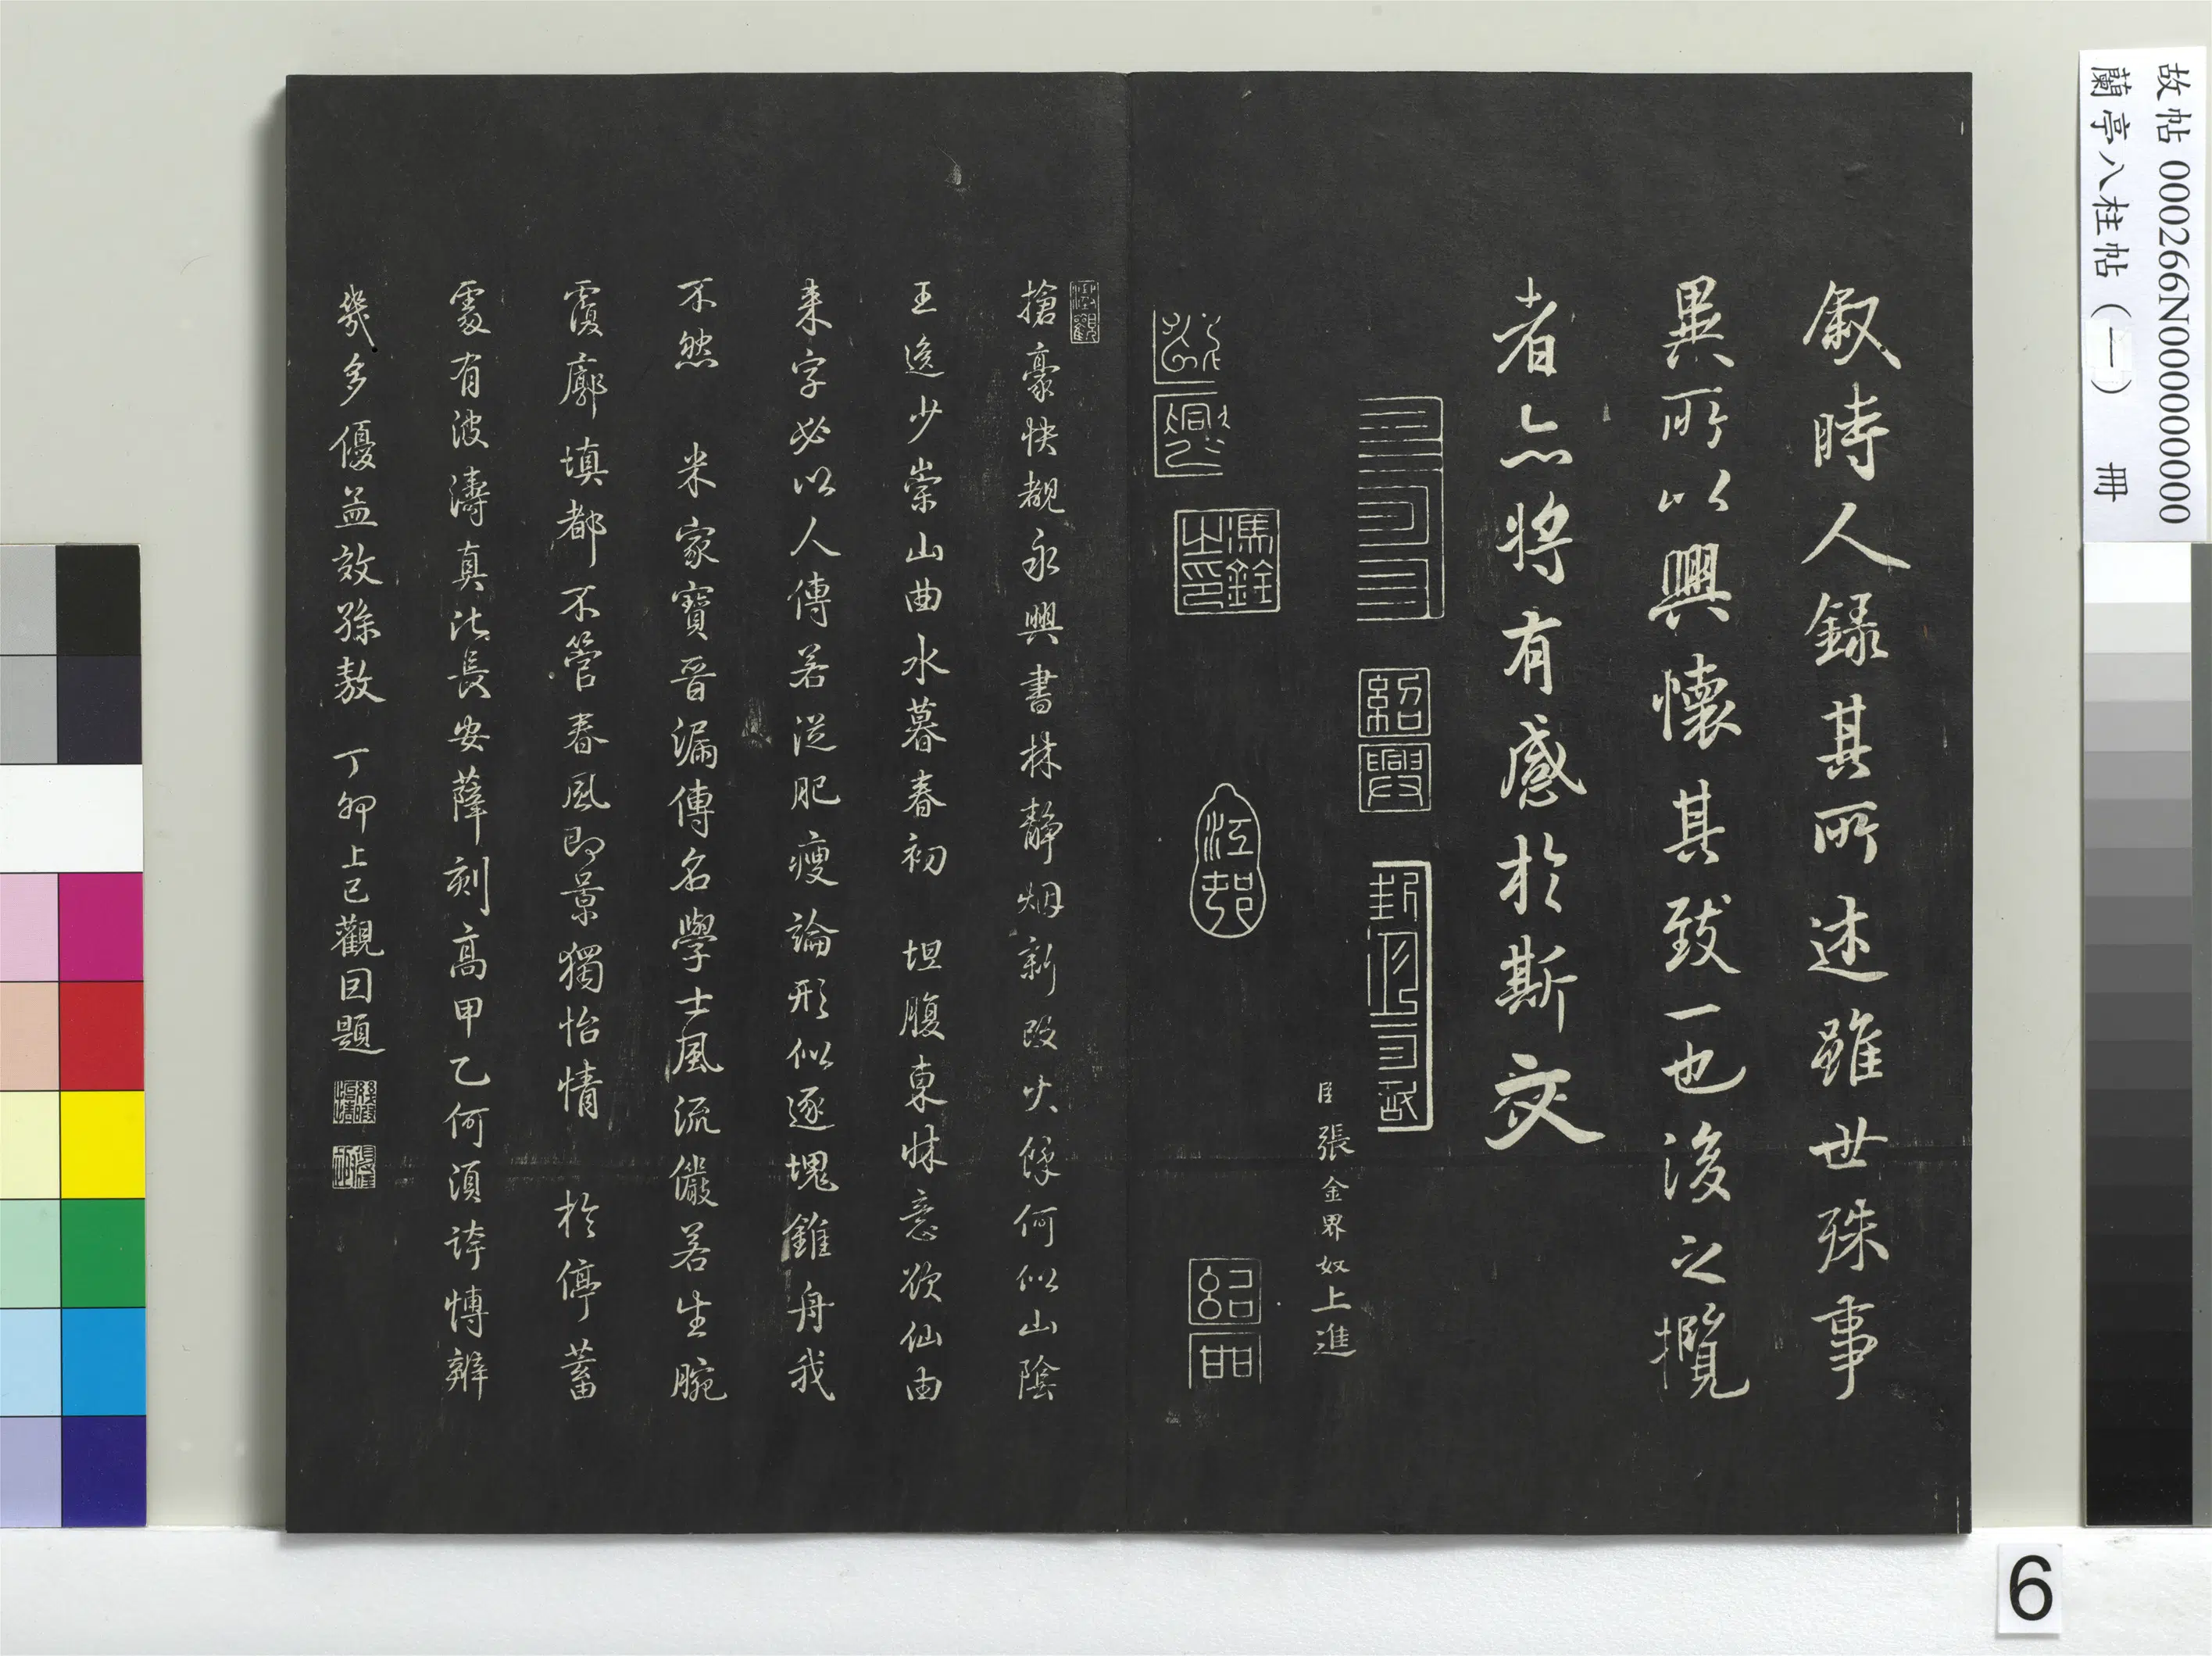 故帖 000266N000000000
蘭亭八柱帖(一) 冊
敘時人錄其所述雖世殊事
異所以興懷其致一也後之攬
者亦將有感於斯文
紹興
臣張金界奴上進
馮銓之印
江邨
搶豪快覩永興書林靜烟新改火餘何似山陰
王逸少崇山曲水暮春初 坦腹東牀意欲仙由
来字必以人傳若從肥瘦論形似逐塊錐舟我
不然 米家寶晉漏傳名學士風流儼若生腕
霞廓填都不管春風即景獨怡情 於停蓄
處有波濤真比長安薛刻高甲乙何須誇博辨
幾多優孟效孫敖 丁卯上巳觀因題
6